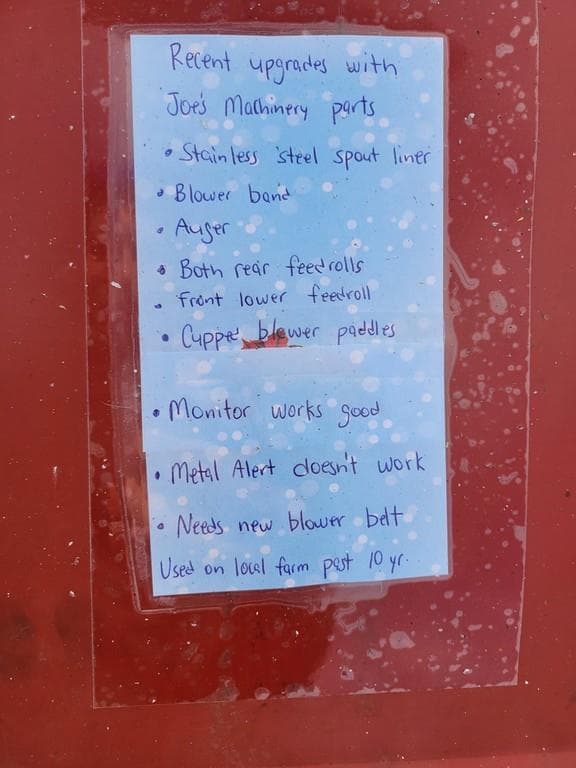 Recent upgrades with
Joe's Machinery parts
• Stainless steel spout liner
• Blower band
• Auger
• Both rear feedrolls
• Front lower feedroll
• Cupped blower paddles
• Monitor works good
• Metal Alert doesn't work
• Needs new blower belt
Used on local farm past 10 yr.